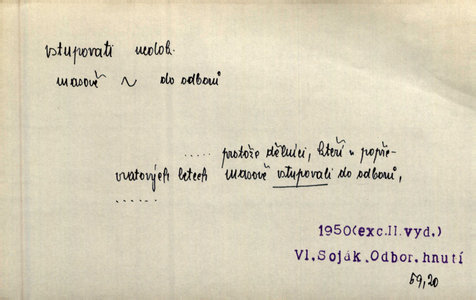 vstupovati nedok.
masově ~ do odborů
..... protože dělníci, kteří v popře-
vratových letech masově vstupovali do odborů,
......
1950(exc.II.vyd.)
Vl.Soják.Odbor.hnutí
59,20